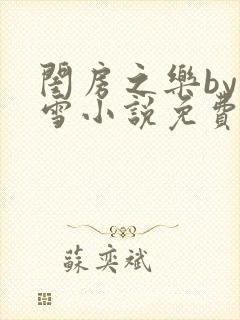 閨房之樂by
雪小說免費
蘇奕斌